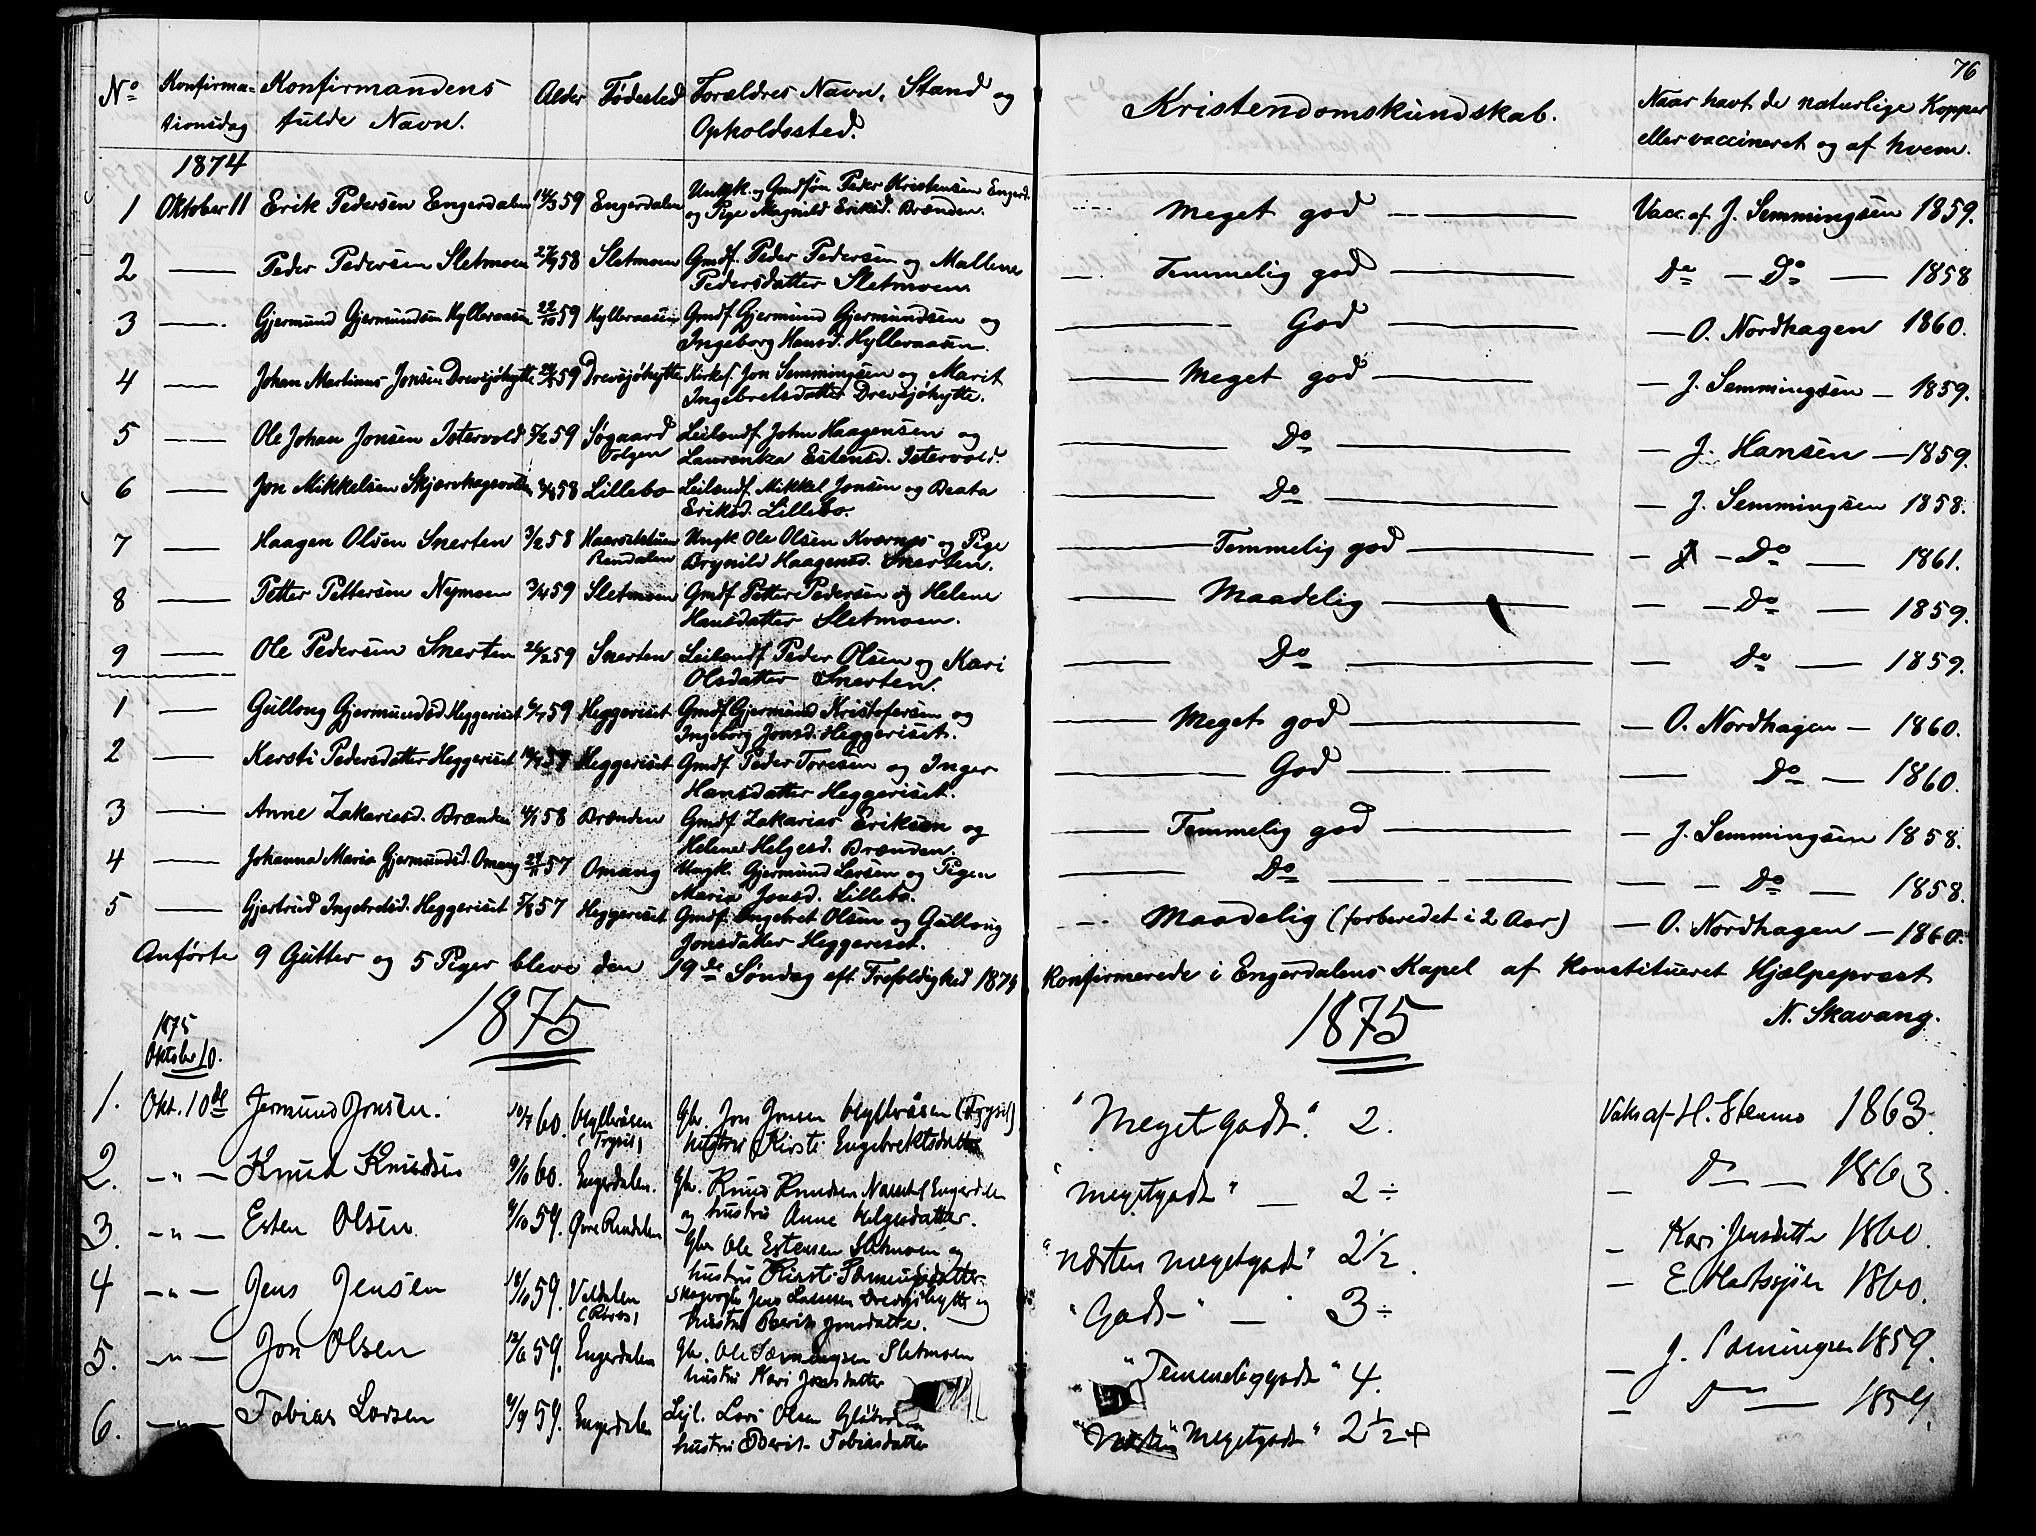 76
No Konfirma- Konfirmandens Alder Fødested Forældres Navn, Stand og Kristendomskundskab. Naar havt de naturlige Kopper
tionsdag fulde Navn. Opholdssted. eller vaccineret og af hvem.
1874
1 Oktober 11 Erik Pedersen Engerdalen 14/3 59 Engerdalen Ungk. og Gmdsøn Peder Kristensen Engerd. Meget god Vacc. af J. Semmingsen 1859.
og Pige Magnild Eriksd. Brænden.
2 — Peder Pedersen Sletmoen 27/9 58 Sletmoen Gmdf. Peder Pedersen og Mallene Temmelig god Do — Do — 1858
Pedersdatter Sletmoen.
3 — Gjermund Gjermundsen Hylleraasen 22/10 59 Hylleraasen Gmdf Gjermund Gjermundsen og God — O. Nordhagen 1860.
Ingeborg Hansd. Hylleraasen.
4 — Johan Martinus Jonsen Drevsjøhytte 59 Drevsjøhytte Kirkes. Jon Semmingsen og Marit Meget god — J. Semmingsen — 1859.
Ingebretsdatter Drevsjøhytte.
5 — Ole Johan Jonsen Istervold 5/2 59 Søgaard Leilændf John Haagensen og Do — J. Hansen — 1859.
Tolgen Laurentza Estensd. Istervold.
6 — Jon Mikkelsen 58 Lillebo Leilændf. Mikkel Jonsen og Beata Do — J. Semmingsen 1858.
Eriksd. Lillebo.
7 — Haagen Olsen Snerten 3/2 58 Ungk Ole Olsen Kværnes og Pige Temmelig god — Do — 1861.
Rendalen Brynild Haagensd. Snerten.
8 — Petter Pettersen Nymoen 3/4 59 Sletmoen Gmdf Petter Pedersen og Helene Maadelig — Do — 1859.
Hansdatter Sletmoen.
9 — Ole Pedersen Snerten 26/2 59 Snerten Leilændf Peder Olsen og Kari Do — Do — 1859.
Olsdatter Snerten.
1 — Gullong Gjermundsd Heggeriset 6/7 59 Heggeriset Gmdf Gjermund Kristofersen og Meget god — O. Nordhagen — 1860.
Ingeborg Jonsd. Heggeriset.
2 — Kersti Pedersdatter Heggeriset 59 Heggeriset Gmdf Peder Toresen og Inger God — Do — 1860.
Hansdatter Heggeriset.
3 — Anne Zakariasd. Brænden 58 Brænden Gmdf Zakarias Eriksen og Temmelig god — J. Semmingsen 1858.
Helene Helgesd. Brænden.
4 — Johanna Maria Gjermundsd. Omang 24/11 57 Omang Ungk. Gjermund Larsen og Pigen Do — Do — 1858.
Maria Jonsd. Lillebo.
5 — Gjertrud Ingebretsd. Heggeriset 5/8 57 Heggeriset Gmdf. Ingebret Olsen og Gullong Maadelig (forberedet i 2 Aar) — O. Nordhagen — 1860.
Jonsdatter Heggeriset.
Anførte 9 Gutter og 5 Piger bleve den 19de Søndag eft Trefoldighed 1874 Konfirmerede i Engerdalens Kapel af Konstitueret Hjælpeprest
N. Skavang.
1875 1875
1875
Oktober 10.
1. Okt. 10de Jermund Jonsen. 10/7 60. Hylleråsen Gbr. Jon Jonsen Hylleråsen (Trysil) "Meget godt." 2. Vaks af H. Stenmo 1863.
(Trysil) hustru Kirsti Engebrektsdatter
2. — " — Knud Knudsen 9/10 60. Engerdalen. Gbr. Knud Knudsen Engerdalen "meget godt" — 2 ÷ — Do — 1863.
og hustru Anne Helgesdatter.
3. — " — Esten Olsen 9/10 59. Øvre Rendalen Gbr Ole Estensen Sletmoen og "Næsten meget godt" 2 1/2. — Kari Jensdatter 1860.
hustru Kirsti
4 — " — Jens Jensen 18/10 59. Skogvogter Jens Larsen Drevsjøhytte og "Godt" — 3 ÷ — E. 1860.
(Røros) hustru Berit Jonsdatter.
5. — " — Jon Olsen 12/6 59. Engerdalen Gbr. Ole Sletmoen "Temmelig godt" 4. — J. 1859.
hustru Kari Jonsdatter
6. — " — Tobias Larsen 9/9 59. Engerdalen Lejl. Lars Olsen "Næsten" Meget godt" 2 1/2 + — Do — 1859.
hustru Berit Tobiasdatter